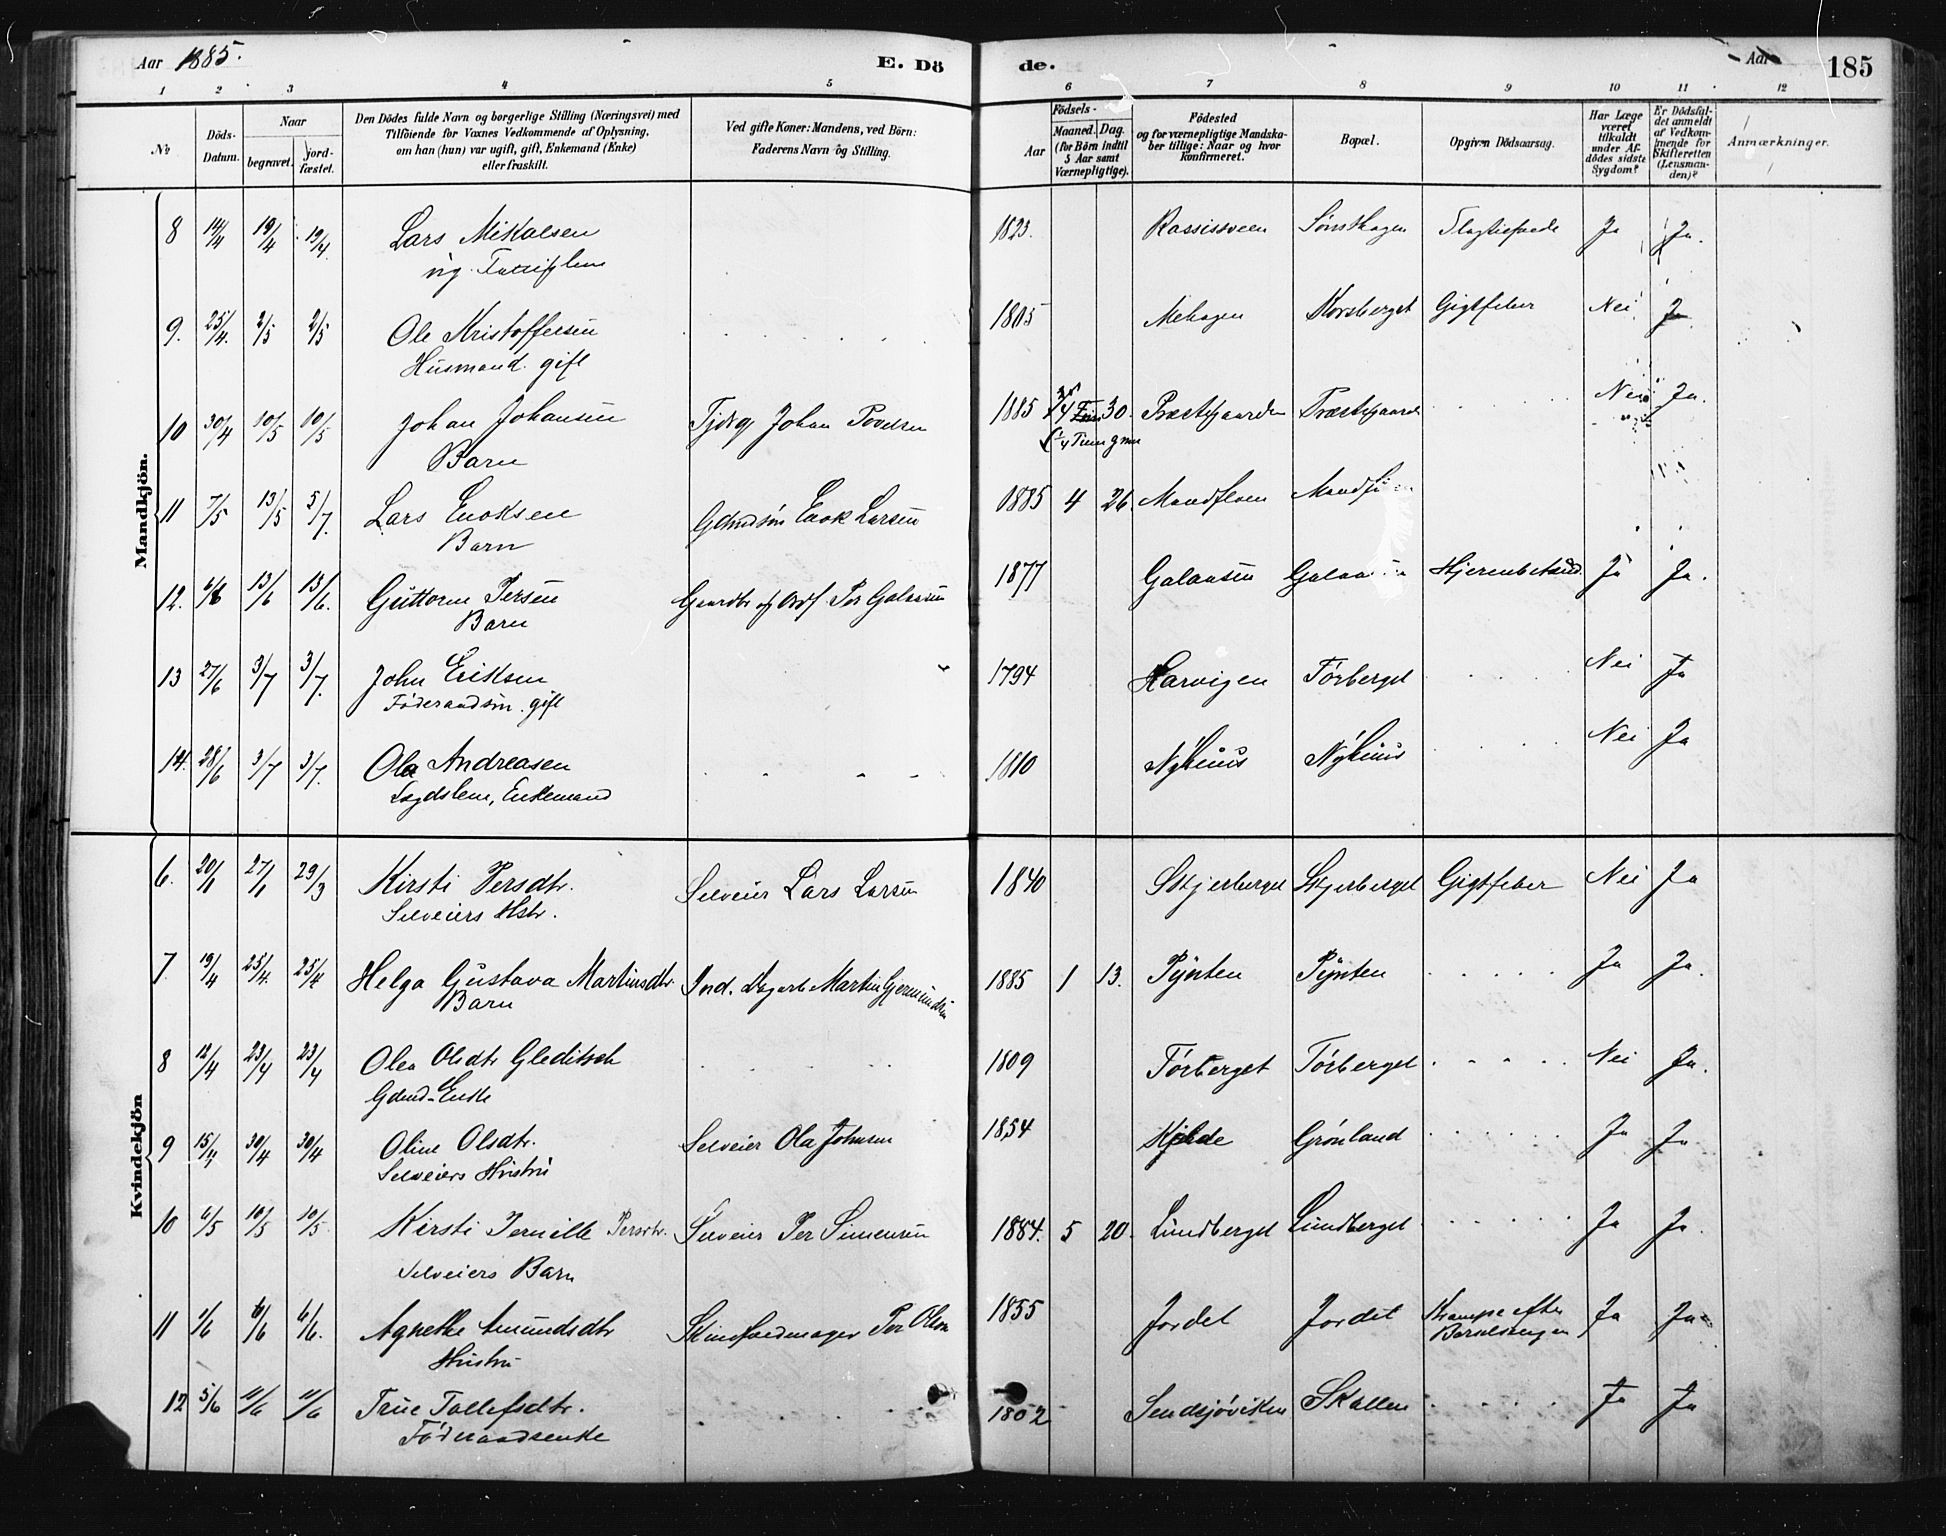 Aar 1885.
E. Dö
de.
Aar
185
1 2 3 4 5 6 7 8 9 10 11 12
№
Döds-Datum.
Naar
begravet.
jord-fæstet.
Den Dödes fulde Navn og borgerlige Stilling (Næringsvei) med
Tilföiende for Voxnes Vedkommende af Oplysning,
om han (hun) var ugift, gift, Enkemand (Enke)
eller fraskilt.
Ved gifte Koner: Mandens, ved Börn:
Faderens Navn og Stilling.
Födsels-
Aar
Maaned. Dag.
(for Börn indtil
5 Aar samt
Værnepligtige).
Födested
og for værnepligtige Mandska-
ber tillige: Naar og hvor
konfirmeret.
Bopæl.
Opgiven Dödsaarsag.
Har Læge
været
tilkaldt
under Af-
dödes sidste
Sygdom?
Er Dödsfal-
det anmeldt
af Vedkom-
mende for
Skifteretten
(Lensman-
den)?
Anmærkninger.
Mandkjön.
8 14/4 19/4 19/4 Lars Mikalsen 1823. Sønskagen Ja Ja.
ug.
9. 25/4. 2/5 2/5 Ole Kristoffersen 1805 Mehagen Korsberget Gigtfeber Nei Ja.
Husmand. gift
10 30/4 10/5 10/5 Johan Johansen Johan Povelsen 1885 30. Præstegaarden Præstegaarden Nei Ja.
Barn
11 7/5 13/5 5/7. Lars Enoksen Gdmdsøn Enok Larsen 1885 4 26.
Barn
12. 6/6 13/6 13/6. Guttorm Persen Per Galaasen 1877 Galaasen Galaasen Ja Ja.
Barn
13 27/6 3/7 3/7. John Eriksen 1794 Harvigen Törberget Nei Ja
gift
14. 28/6 3/7 3/7. Ola Andreasen 1810 Nyhuus Nyhuus Nei Ja
Lægdslem, Enkemand
Kvindekjön
6. 27/1 29/3 Kirsti Persdtr. Selveier Lars Larsen 1840 Skjerberget Skjerberget Gigtfeber Nei Ja
Selveiers Hstr.
7. 19/4 25/4. 25/4 Helga Gustava Martinsdtr. Ind. Dagarb Martin Gjermundsen 1885 1 13. Pynten Pynten Ja Ja.
Barn
8 12/4 23/4 23/4 Olea Olsdtr Gleditsch 1809 Törberget Törberget Nei Ja.
Gdmd-Enke
9 15/4 30/4 30/4 Oline Olsdtr. Selveier Ola Johnsen 1854 Kjølde Grönland Ja Ja
Selveiers Hustru
10 6/5 10/5 10/5. Kirsti Pernille Persdtr. Selveier Per Simensen 1884. 5 20. Lundberget Lundberget Ja Ja.
Selveiers Barn
11 1/6 6/6 6/6. Agnethe Amundsdtr Per Olsen 1855 Jordet Jordet Krampe efter Ja Ja
Hustru Barselsengen
12 5/6 11/6 11/6 True Tollefsdtr. 1802 Sendsjöviken Skallen Ja Ja
Föderaadsenke